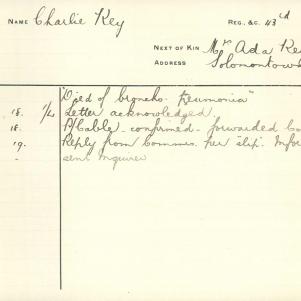 NAME Charlie Key
REG. &C. 43rd
NEXT OF KIN Mrs Ada Ke
ADDRESS Solomontow
"Died of broncho. pneumonia"
18. 1/4 Letter acknowledged
18. A/Cable confirmed. forwarded
19. Reply from Comms. per "slip". Infor
sent